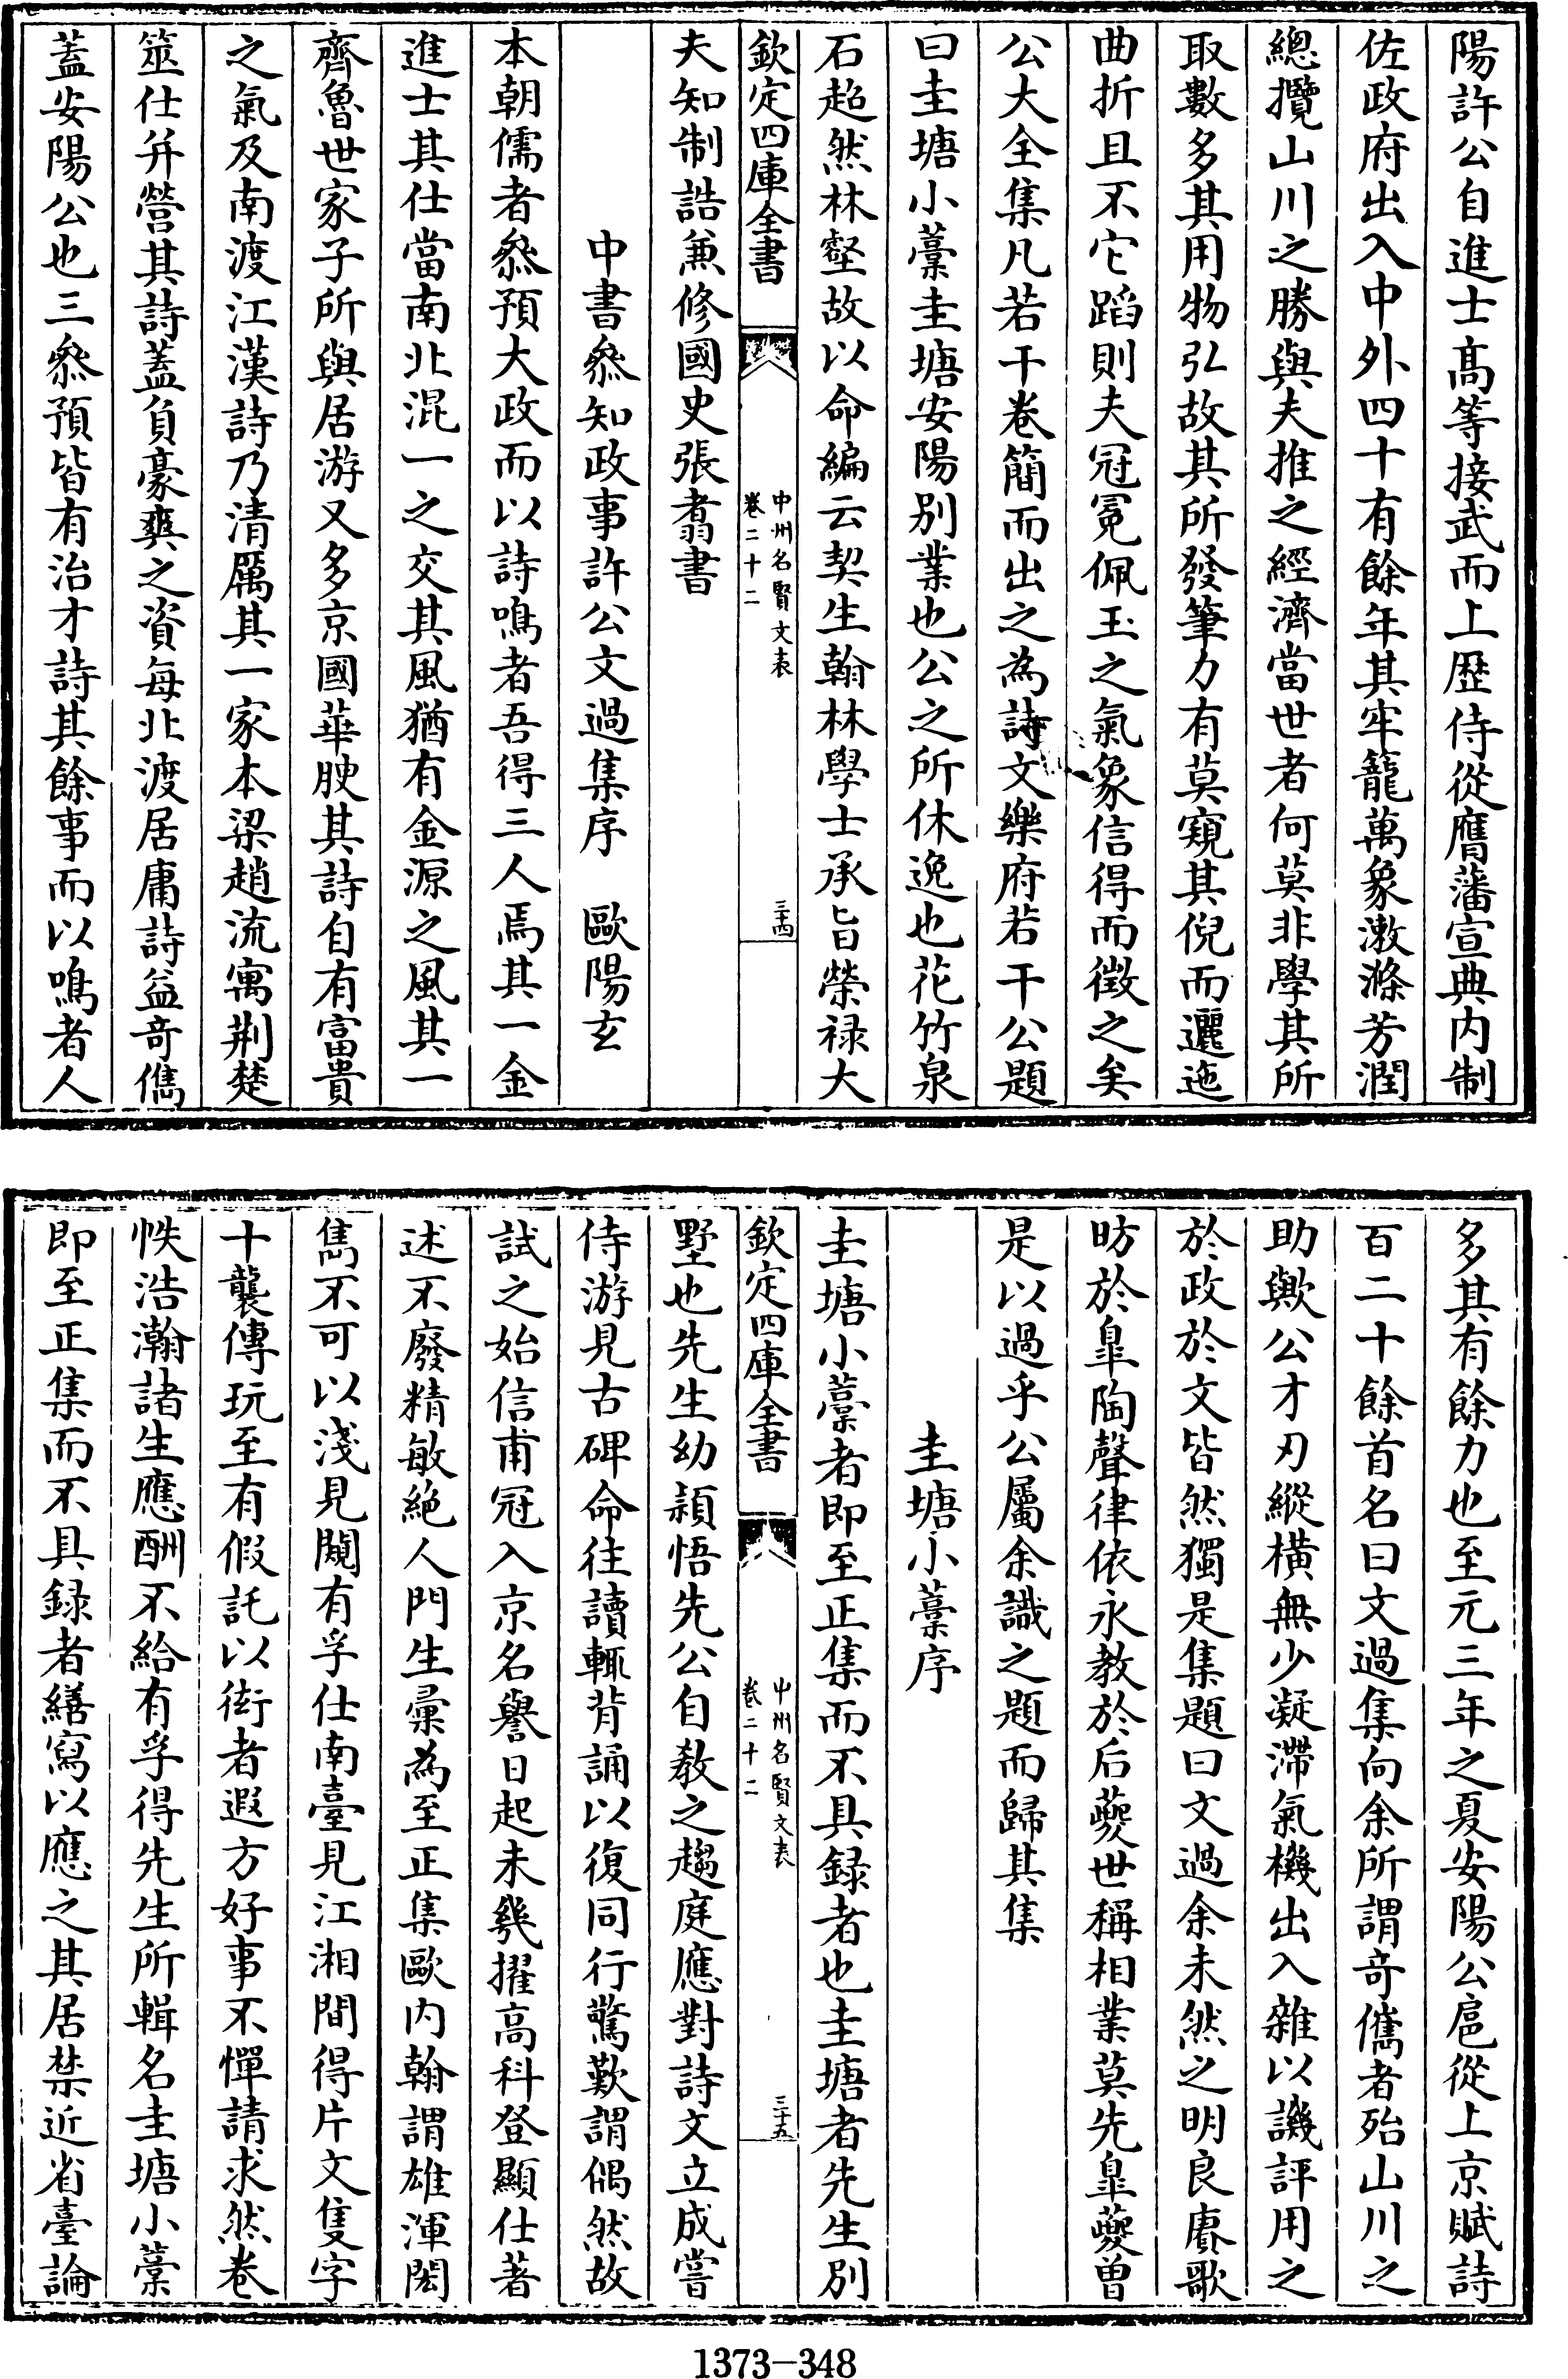 陽許公自進士髙等接武而上歴侍從膺藩宣典内制
佐政府出入中外四十有餘年其牢籠萬象潄滌芳潤
總攬山川之勝與夫推之經濟當世者何莫非學其所
取數多其用物弘故其所發筆力有莫窺其倪而邐迤
曲折且不它蹈則夫冠冕佩玉之氣象信得而徴之矣
公大全集凡若干卷簡而出之為詩文樂府若干公題
曰圭塘小藁圭塘安陽别業也公之所休逸也花竹泉
石超然林壑故以命編云契生翰林學士承旨榮禄大
欽定四庫全書
中州名賢文表
卷二十二
三十四
夫知制誥兼修國史張翥書
中書叅知政事許公文過集序 歐陽玄
本朝儒者叅預大政而以詩鳴者吾得三人焉其一金
進士其仕當南北混一之交其風猶有金源之風其一
齊魯世家子所與居游又多京國華腴其詩自有富貴
之氣及南渡江漢詩乃清厲其一家本梁趙流寓荆楚
筮仕并營其詩蓋負豪爽之資每北渡居庸詩益竒儁
蓋安陽公也三叅預皆有治才詩其餘事而以鳴者人
多其有餘力也至元三年之夏安陽公扈從上京賦詩
百二十餘首名曰文過集向余所謂竒儁者殆山川之
助歟公才刃縱横無少凝滯氣機出入雜以譏評用之
於政於文皆然獨是集題曰文過余未然之明良賡歌
昉於臯陶聲律依永教於后夔世稱相業莫先臯夔曽
是以過乎公屬余識之題而歸其集
圭塘小藁序
圭塘小藁者即至正集而不具録者也圭塘者先生别
欽定四庫全書
中州名賢文表
卷二十二
三十五
墅也先生幼頴悟先公自教之趨庭應對詩文立成嘗
侍游見古碑命往讀輒背誦以復同行驚歎謂偶然故
試之始信甫冠入京名譽日起未幾擢高科登顯仕著
述不廢精敏絶人門生彚為至正集歐内翰謂雄渾閎
雋不可以淺見闚有孚仕南臺見江湘間得片文隻字
十襲傳玩至有假託以衒者遐方好事不憚請求然卷
帙浩瀚諸生應酬不給有孚得先生所輯名圭塘小藁
即至正集而不具録者繕寫以應之其居禁近省臺論
1373-348